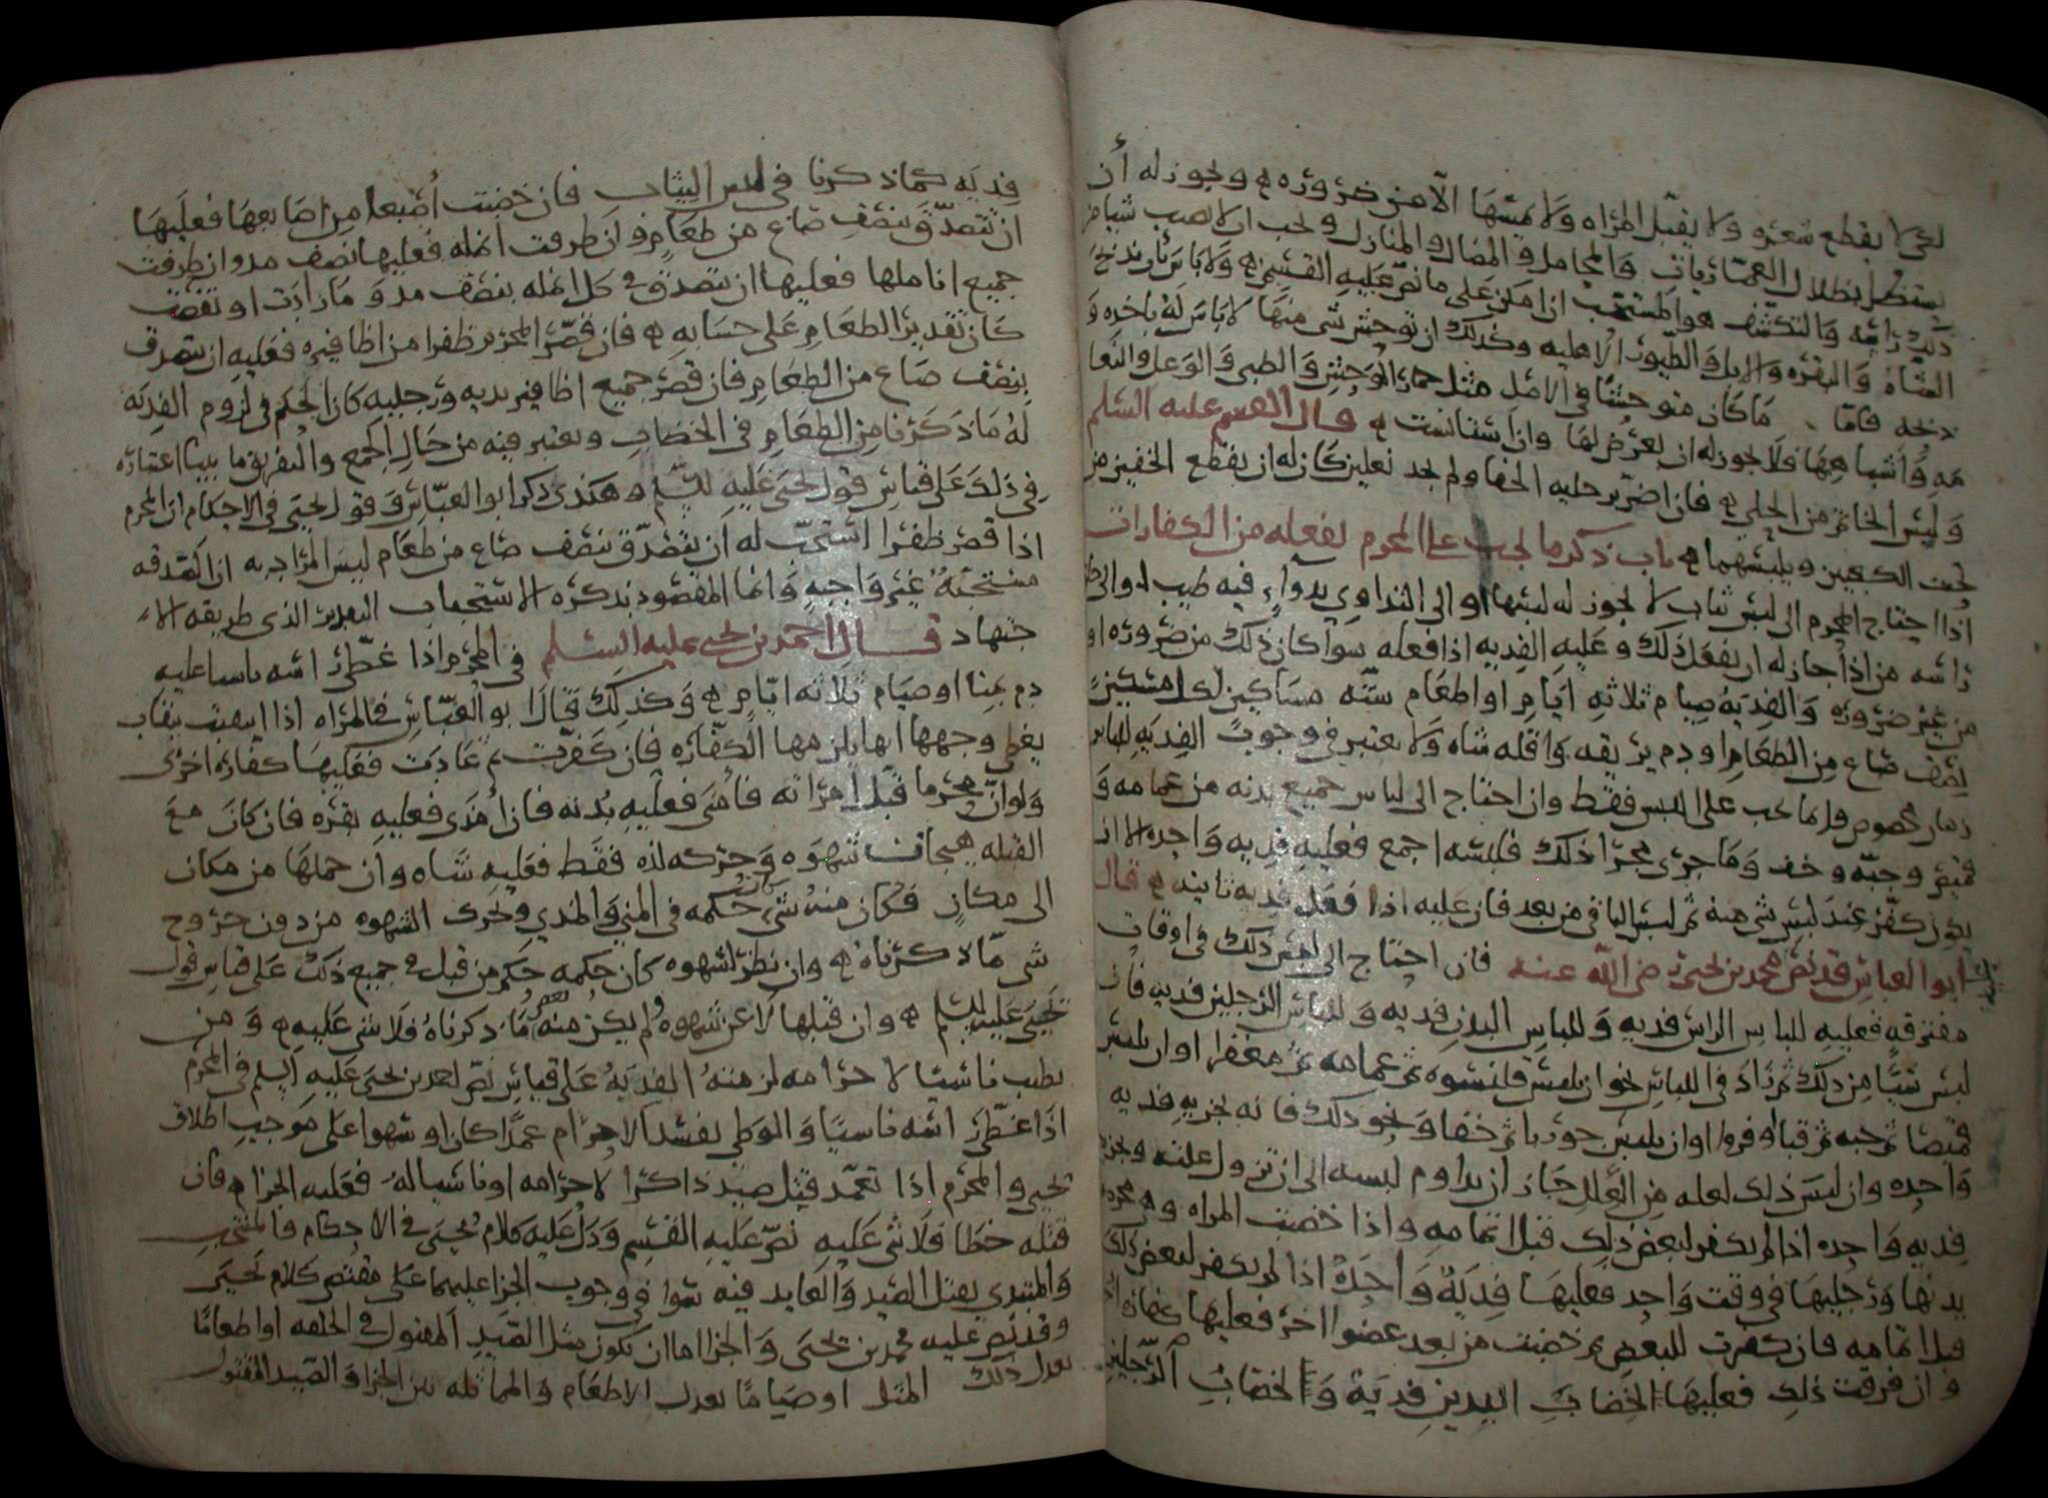 لئلا يقطع شعره ولا يقبل المراه ولا يمسها الا من ضروره ويجوز له أن
يستظل بظلال العماريات والمحامل والمضال والمنازل ويجب ان لا يصيب شيا من
ذلك راسه والتكشف هو المستحب ان امكن على ما نص عليه القسم ولا باس بان يذبح
الشاة والبقره والابل والطيور الاهليه وكذلك ان توحش شى منها لا باس له باخذه و
ذبحه فاما ما كان متوحشا في الاصل مثل حمار الوحش والظبى والوعل والنعا
مه وأشباهها فلا يجوز له ان يعرض لها وان استانست قال القسم عليه السلم
وليس الخاتم من الحلي فان اضر برجليه الحفا ولم يجد نعلين كان له ان يقطع الخفين من
تحت الكعبين ويلبسهما باب ذكر ما يجب على المحرم بفعله من الكفارات
اذا احتاج المحرم الى لبس ثياب لا يجوز له لبسها او الى التداوي بدواء فيه طيب او الى
راسه من اذا جاز له ان يفعل ذلك وعليه الفديه اذا فعله سوا كان ذلك من ضروره او
من غير ضروره والفديه صيام ثلاثه أيام او اطعام سته مساكين لكل مسكين
نصف صاع من الطعام او دم يريقه واقله شاه ولا يعتبر في وجوب الفديه للباس
زمان مخصوص وانما يجب على اللبس فقط وان احتاج الى لباس جميع بدنه من عمامه و
قميص وجبه وخف وما جرى مجرا ذلك فلبسه اجمع فعليه فديه واحده الا ان
يكون كفر عند لبس شى منه ثم لبس الباقى من بعد فان عليه اذا فعل فديه ثانيه قال
ابو العباس قد نص محمد بن يحيى رضى الله عنه فان احتاج الى لبس ذلك في اوقات
مفترقه فعليه للباس الراس فديه وللباس البدن فديه وللباس الرجلين فديه فان
لبس شيئا من ذلك ثم زاد في اللباس نحو ان يلبس قلنسوه ثم عمامه ثم مغفرا او ان يلبس
قميصا ثم جبه ثم قبا او فروا او ان يلبس جوربا ثم خفا ونحو ذلك فانه يجزيه فديه
واحده وان لبس ذلك لعله من العلل جاز ان يداوم لبسه الى ان تزول علته ويجزيه
فديه واحده اذا لم يكفر لبعض ذلك قبل اتمامه واذا خضبت المراه وهى محرمه
يديها ورجليها في وقت واحد فعليها فدية واحدة اذا لم يكفر لبعض ذلك
قبل اتمامه فان كفرت للبعض ثم خضبت من بعد عضوا اخر فعليها كفاره
وان فرقت ذلك فعليها لخضاب اليدين فدية ولخضاب الرجلين
فديه كما ذكرنا في لبس الثياب فان خضبت أصبعا من اصابعها فعليها
ان تتصدق بنصف صاع من طعام وان طرفت انمله فعليها نصف مد وان طرفت
جميع اناملها فعليها ان تتصدق في كل انمله بنصف مد وما زادت او نقصت
كان تقدير الطعام على حسابه فان قصر المحرم ظفرا من اظافيره فعليه ان يتصدق
بنصف صاع من الطعام فان قصر جميع اظافير يديه ورجليه كان الحكم في لزوم الفديه
له ما ذكرنا من الطعام في الخضاب ويعتبر فيه من حال الجمع والتفريق ما بينا اعتباره
في ذلك على قياس قول يحيى عليه السلم هكذى ذكر ابو العباس وقول يحيى في الاحكام ان المحرم
اذا قصر ظفرا استحب له ان يتصدق بنصف صاع من طعام ليس المراد به ان الصدقه
مستحبة غير واجبه وانما المقصود بذكره الاستحباب التقدير الذى طريقه الا
جتهاد قال احمد بن يحيى عليه السلم في المحرم اذا غطى راسه ناسيا عليه
دم بمنا او صيام ثلاثه ايام وكذلك قال ابو العباس في المراه اذا انتقبت بنقاب
يغطى وجهها انها يلزمها الكفاره فان كفرت ثم عادت فعليها كفاره اخرى
ولو ان محرما قبل امراته فأمنى فعليه بدنه فان أمذى فعليه بقره فان كان مع
القبله هيجان شهوه وحركه لذه فقط فعليه شاه وان حملها من مكان
الى مكان فكان منه شى كان حكمه في المني والمذي وتحرك الشهوه من دون خروج
شى ما ذكرناه وان نظر لشهوه كان حكمه حكم من قبل في جميع ذلك على قياس قول
يحيى عليه السلم وان قبلها لا عن شهوه ولم يكن منه بعض ما ذكرناه فلا شى عليه ومن
تطيب ناسيا لاحرامه لزمته الفدية على قياس نص احمد بن يحيى عليه السلم في المحرم
اذا غطى راسه ناسيا والوطى يفسد الاحرام عمدا كان او سهوا على موجب اطلاق
يحيى والمحرم اذا تعمد قتل صيد ذاكرا لاحرامه او ناسيا له فعليه الجزا فان
قتله خطا فلا شى عليه نص عليه القسم ودل عليه كلام يحيى في الاحكام والمنتخب
والمبتدي بقتل الصيد والعايد فيه سوا في وجوب الجزا عليهما على مقتضى كلام يحيى
وقد نص عليه محمد بن يحيى والجزا اما ان يكون مثل الصيد المقتول في الخلقه او اطعاما
يعدل ذلك المثل او صياما يعدل الاطعام والمماثله بين الجزا والصيد المقتول